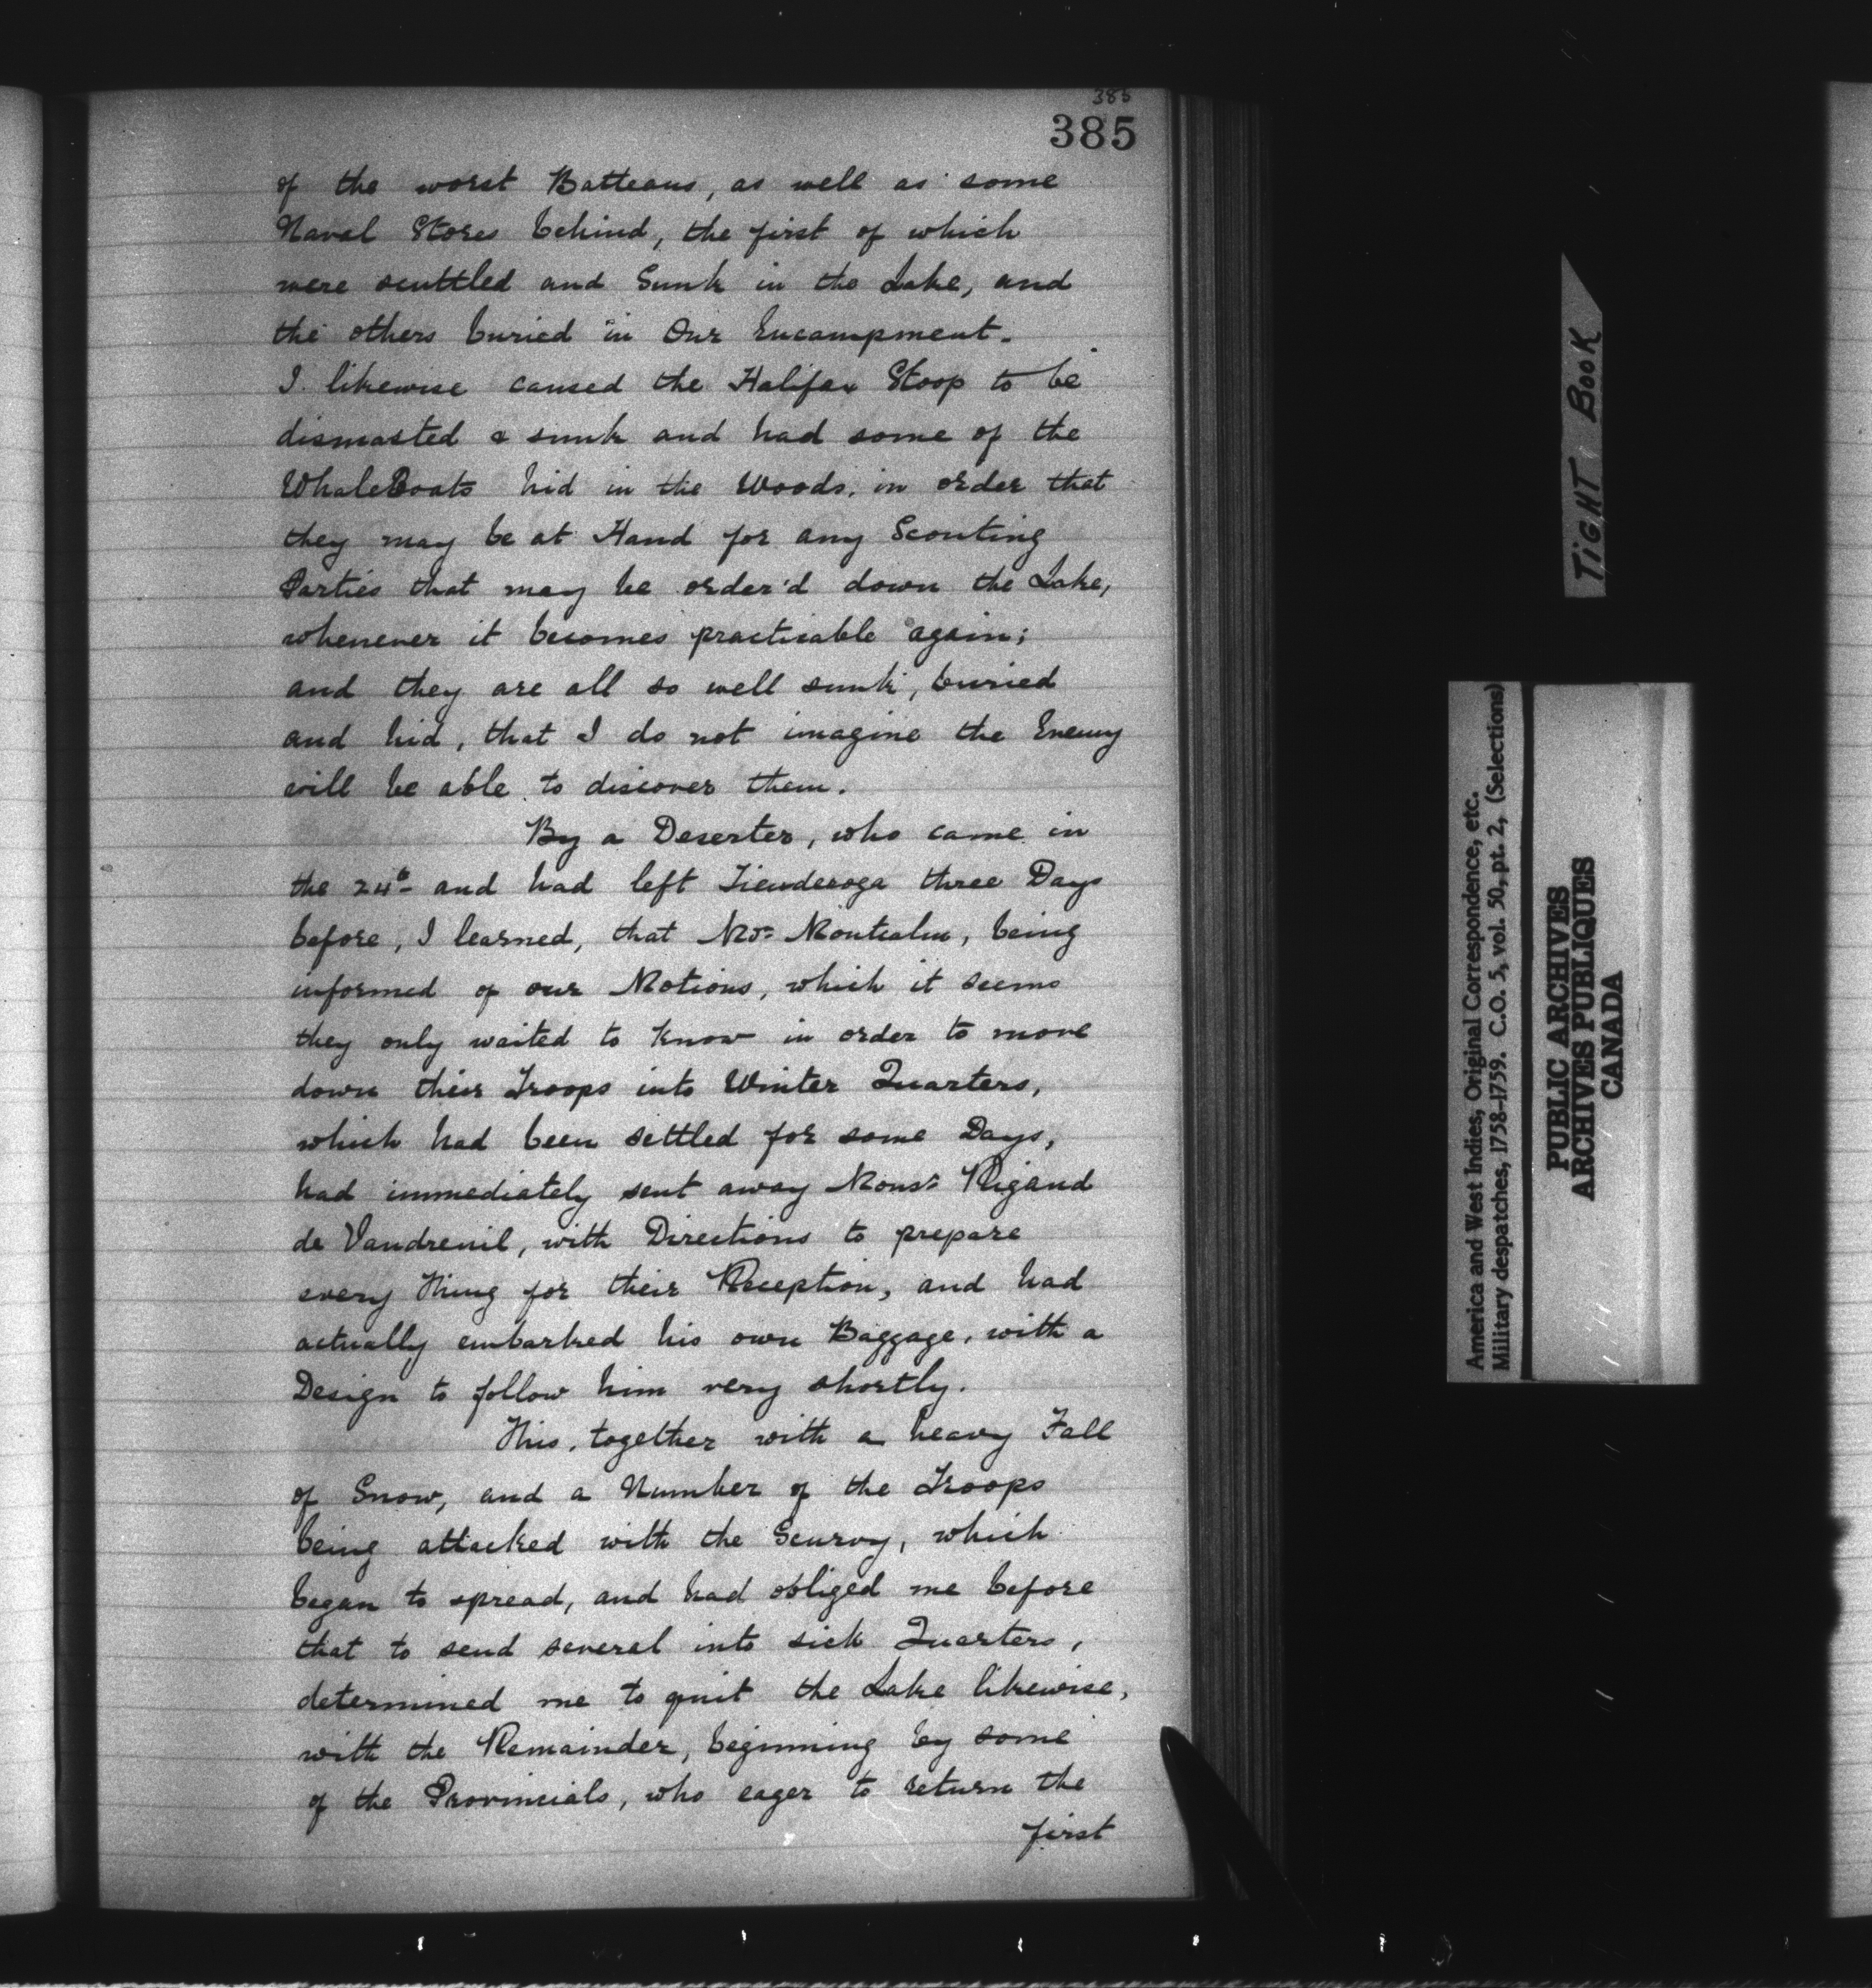 385
385
of the worst Batteaus, as well as some
Naval Stores behind, the first of which
were scuttled and Sunk in the Lake, and
the others buried in Our Encampment.
I likewise caused the Halifax Sloop to be
dismasted & sunk and had some of the
WhaleBoats hid in the Woods, in order that
they may be at Hand for any Scouting
Parties that may be order'd down the Lake,
whenever it becomes practicable again;
and they are all so well sunk, buried
and hid, that I do not imagine the Enemy
will be able to discover them.
By a Deserter, who came in
the 24th and had left Tienderoga three Days
before, I learned, that Mr. Montcalm, being
informed of our Motions, which it seems
they only waited to Know in order to move
down their Troops into Winter Quarters,
which had been settled for some Days,
had immediately sent away Monsr. Rigaud
de Vaudreuil, with Directions to prepare
every Thing for their Reception, and had
actually embarked his own Baggage, with a
Design to follow him very shortly.
This, together with a heavy Fall
of Snow, and a Number of the Troops
being attacked with the Scurvy, which
began to spread, and had obliged me before
that to send several into sick Quarters,
determined me to quit the Lake likewise,
with the Remainder, beginning by some
of the Provincials, who eager to return the
first
TIGHT BOOK
America and West Indies, Original Correspondence, etc.
Military despatches, 1758-1759. C.O. 5, vol. 50, pt. 2, (Selections)
PUBLIC ARCHIVES
ARCHIVES PUBLIQUES
CANADA